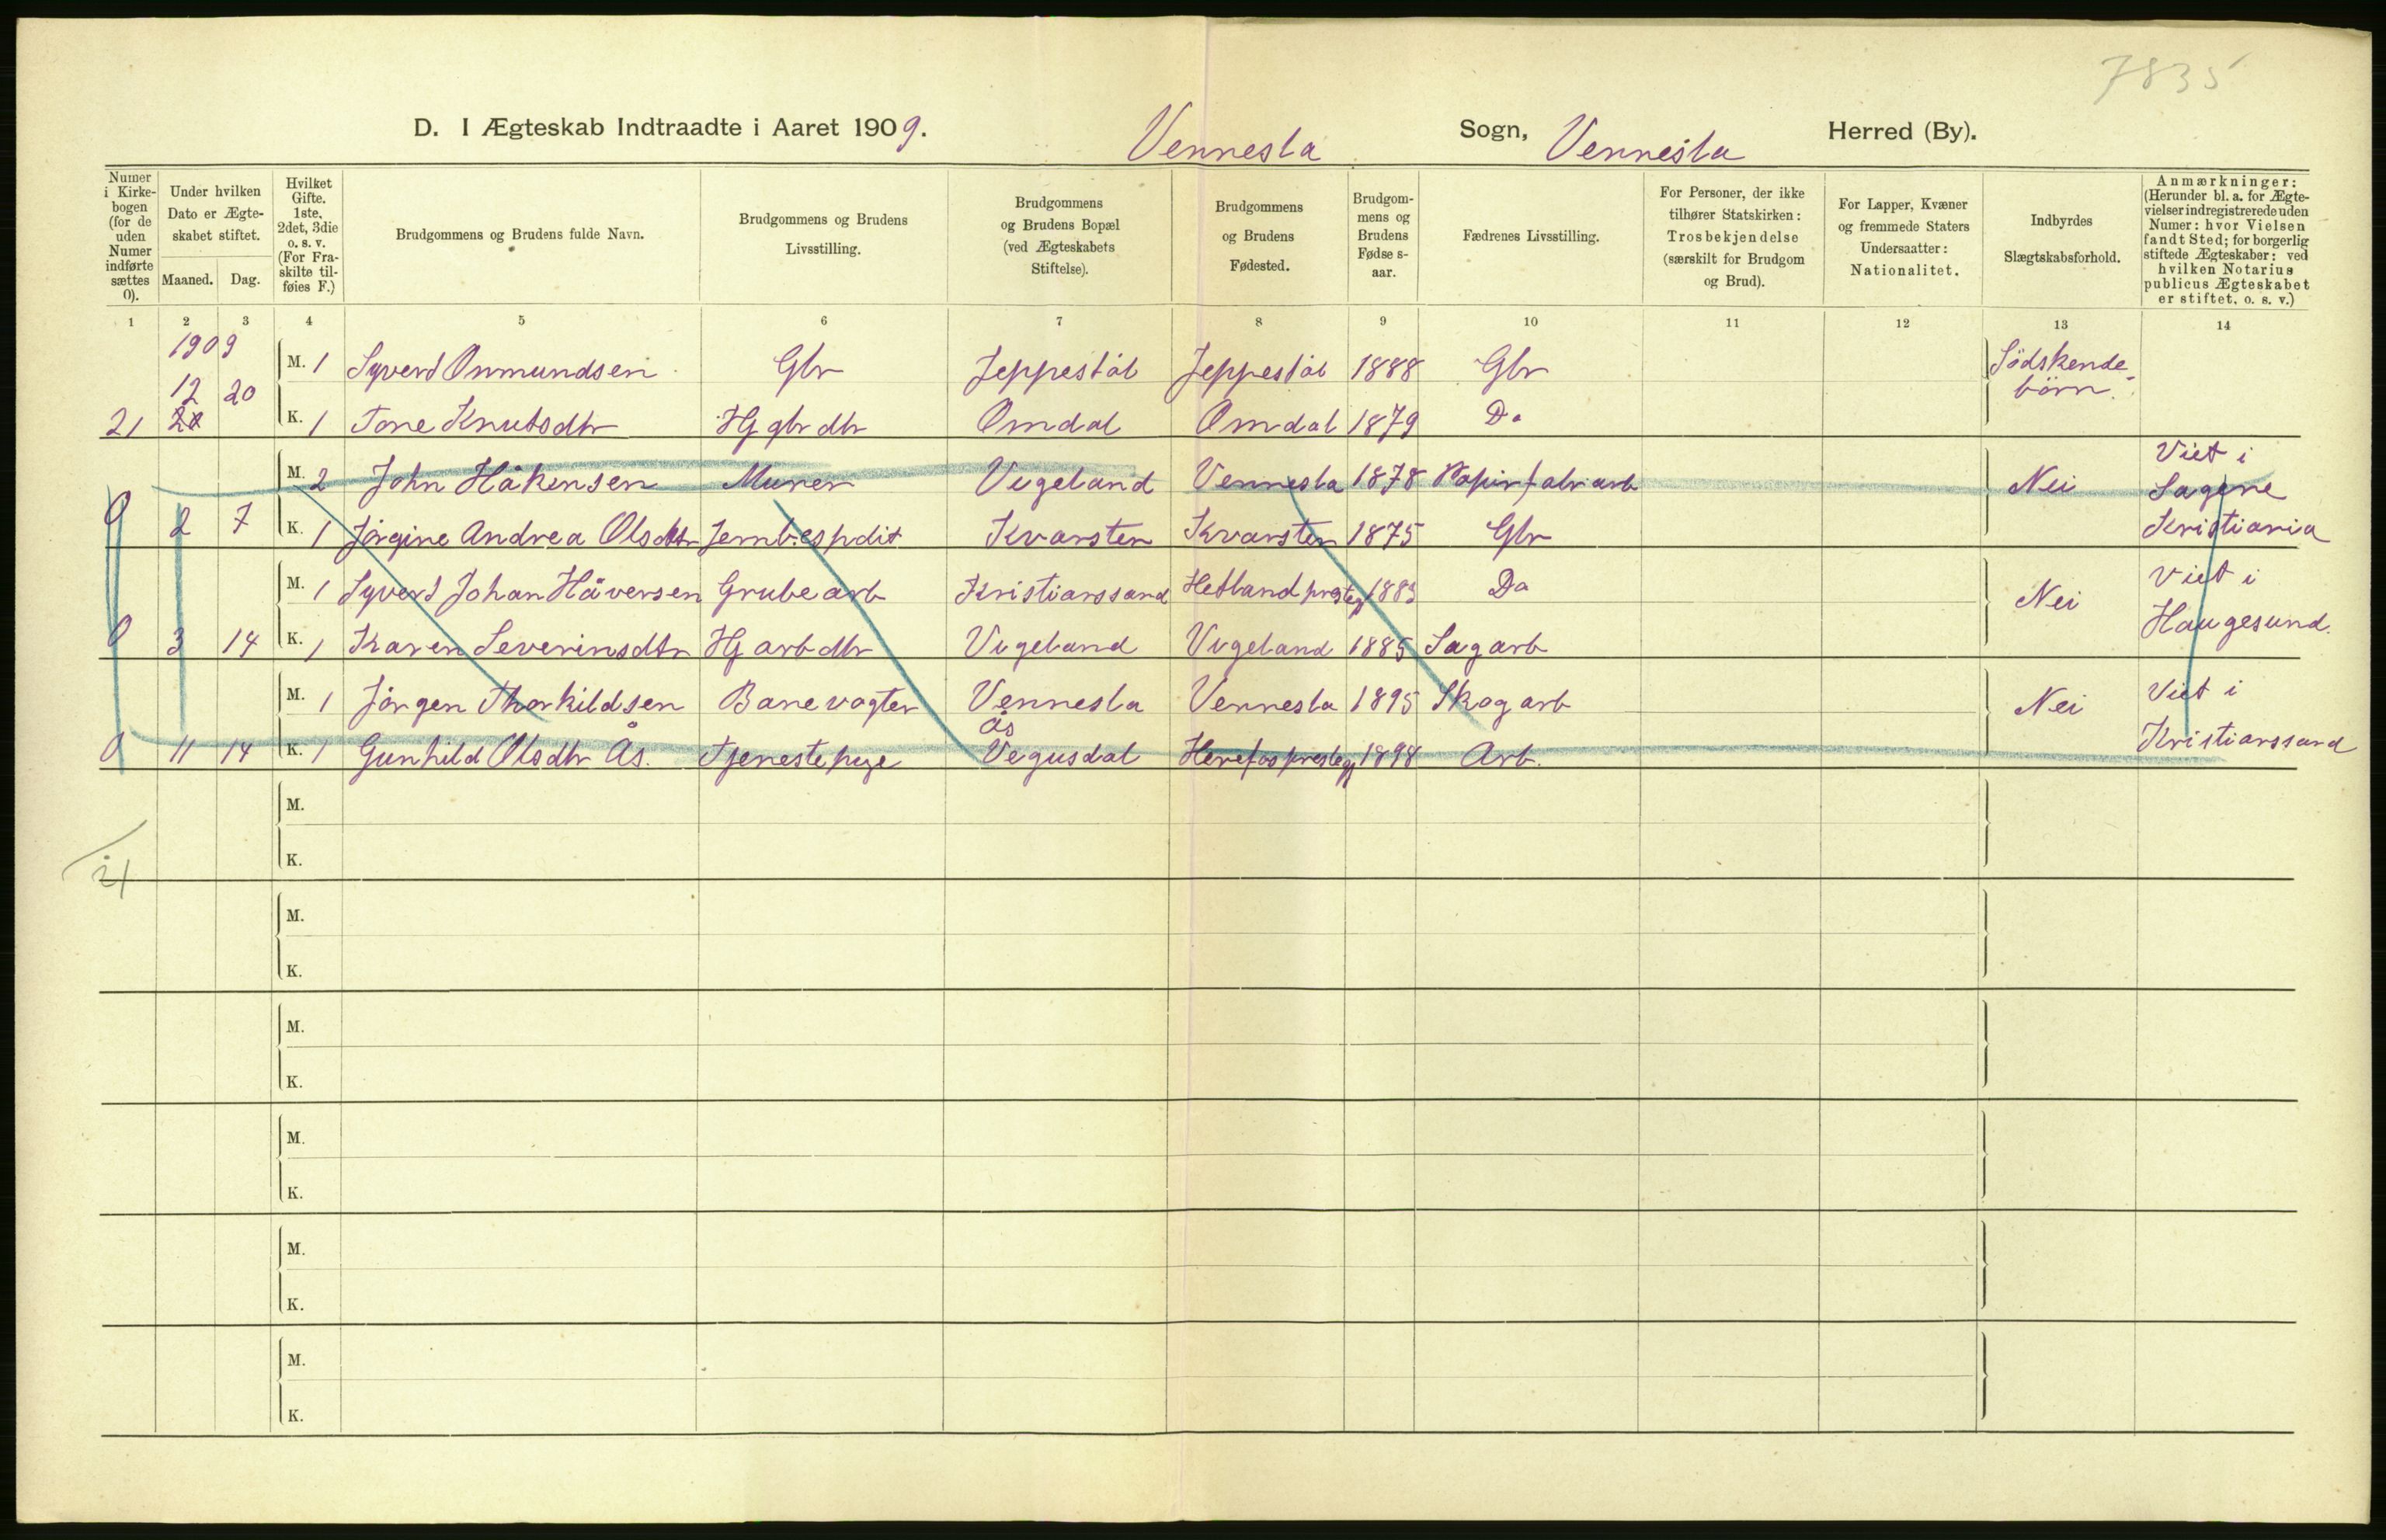 7835
D. I Ægteskab Indtraadte i Aaret 1909. Vennesla Sogn, Vennesla Herred (By).
Numer i Kirke-bogen (for de uden Numer indførte sættes 0).
Under hvilken Dato er Ægte-skabet stiftet.
Maaned. Dag.
Hvilket Gifte. 1ste, 2det, 3die o. s. v. (For Fra-skilte til-føies F.)
Brudgommens og Brudens fulde Navn.
Brudgommens og Brudens Livsstilling.
Brudgommens og Brudens Bopæl (ved Ægteskabets Stiftelse).
Brudgommens og Brudens Fødested.
Brudgom-mens og Brudens Fødse s-aar.
Fædrenes Livsstilling.
For Personer, der ikke tilhører Statskirken: Trosbekjendelse (særskilt for Brudgom og Brud).
For Lapper, Kvæner og fremmede Staters Undersaatter: Nationalitet.
Indbyrdes Slægtskabsforhold.
Anmærkninger: (Herunder bl. a. for Ægte-vielser indregistrerede uden Numer: hvor Vielsen fandt Sted; for borgerlig stiftede Ægteskaber: ved hvilken Notarius publicus Ægteskabet er stiftet. o. s. v.)
1 2 3 4 5 6 7 8 9 10 11 12 13 14
1909
M. 1 Syvert Onmundsen Gbr Jeppestøl Jeppestøl 1888 Gbr Södskende-börn.
12 20
21 K. 1 Tone Knutsdtr Hj gbr dtr Omdal Omdal 1879 Do
M. 2 John Håkensen Murer Vigeland Vennesla 1878 Papirfabr arb Nei Viet i Sagene Kristiania
0 2 7 K. 1 Jørgine Andrea Olsdtr Jernb.espdit Kvarsten Kvarsten 1875 Gbr
M. 1 Syvert Johan Håversen Grubearb Kristianssand Hetland prestegj 1883 Do Nei Viet i Haugesund.
0 3 14 K. 1 Karen Severinsdtr Hj arb dtr Vigeland Vigeland 1885 Sagarb
M. 1 Jørgen Thorkildsen Banevogter Vennesla Vennesla 1895 Skogarb Nei Viet i Kristianssand
Ås
0 11 14 K. 1 Gunhild Olsdtr Ås. Tjenestepige Vegusdal Herefos prestegj 1898 Arb.
M.
K.
21
M.
K.
M.
K.
M.
K.
M.
K.
M.
K.